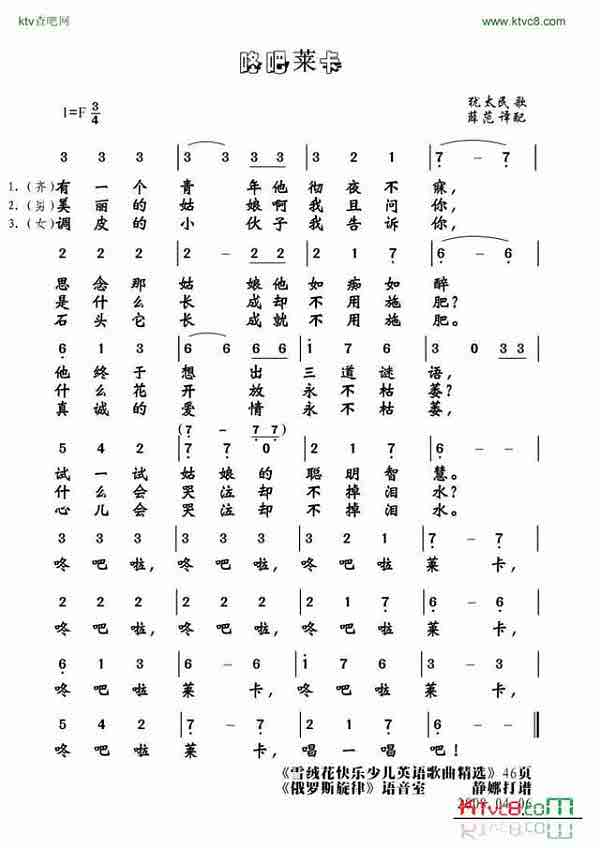 ktv查吧网 www.ktvc8.com
咚吧莱卡
1=F 3/4 犹太民歌
薛范译配
3 3 3 | 3 3 3 3 | 3 2 1 | 7 – 7 |
1.(齐)有一个青年他彻夜不寐,
2.(男)美丽的姑娘啊我且问你,
3.(女)调皮的小伙子我告诉你,
2 2 2 | 2 – 2 2 | 2 1 7 | 6 – 6 |
思念那姑娘他如痴如醉
是什么长成却不用施肥?
石头它长成就不用施肥。
6 1 3 | 6 6 6 6 | 1 7 6 | 3 0 3 3 |
他终于想出三道谜语,
什么花开放永不枯萎?
真诚的爱情永不枯萎,
(7 – 7 7)
5 4 2 | 7 7 0 | 2 1 7 | 6 – – |
试一试姑娘的聪明智慧。
什么会哭泣却不掉泪水?
心儿会哭泣却不掉泪水。
3 3 3 | 3 3 3 | 3 2 1 | 7 – 7 |
咚吧啦,咚吧啦,咚吧啦莱卡,
2 2 2 | 2 2 2 | 2 1 7 | 6 – 6 |
咚吧啦,咚吧啦,咚吧啦莱卡,
6 1 3 | 6 – 6 | 1 7 6 | 3 – 3 |
咚吧啦莱卡,咚吧啦莱卡,
5 4 2 | 7 – 7 | 2 1 7 | 6 – – ‖
咚吧啦莱卡,唱一唱吧!
《雪绒花快乐少儿英语歌曲精选》46页
《俄罗斯旋律》语音室 静娜打谱
2009.04.06
KTVC8.COM